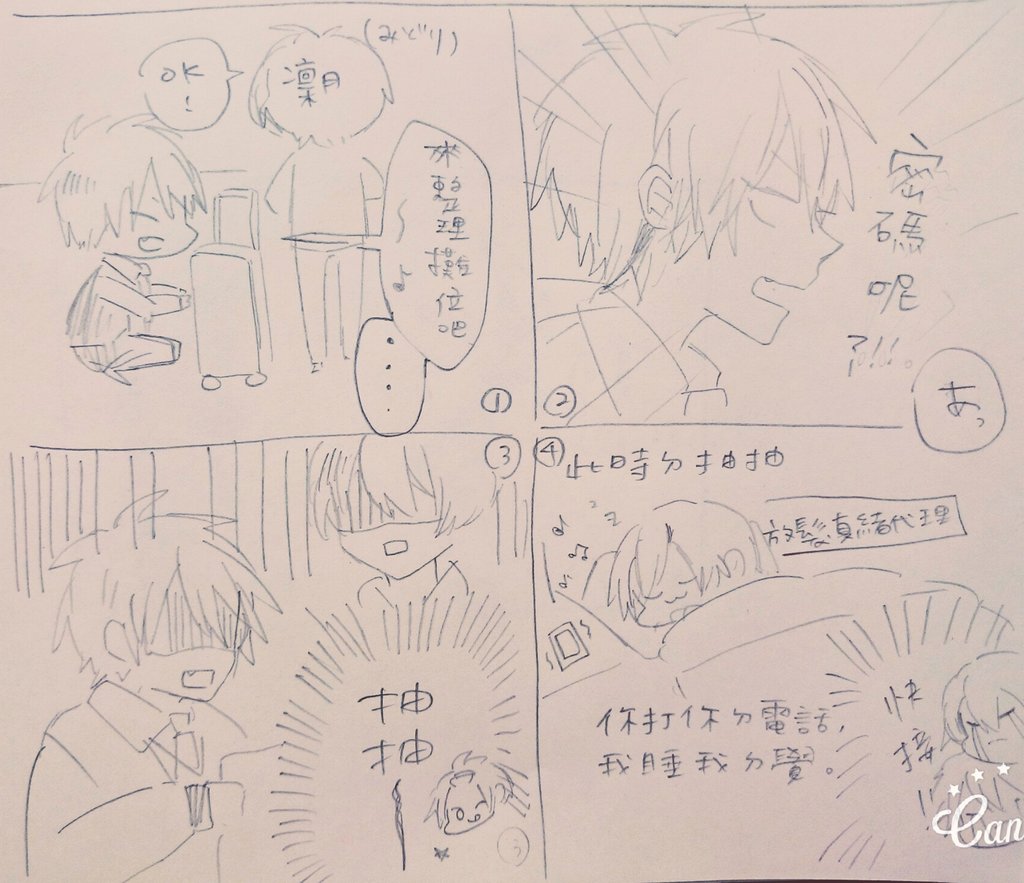 (みどり)
OK!
凜月
來整理攤位吧
♪
....
①
密碼呢?!!!。
②
あっ
③
抽抽
④
此時ㄉ抽抽
放髮真緒代理
你打你ㄉ電話,
我睡我ㄉ覺。
快接
Can